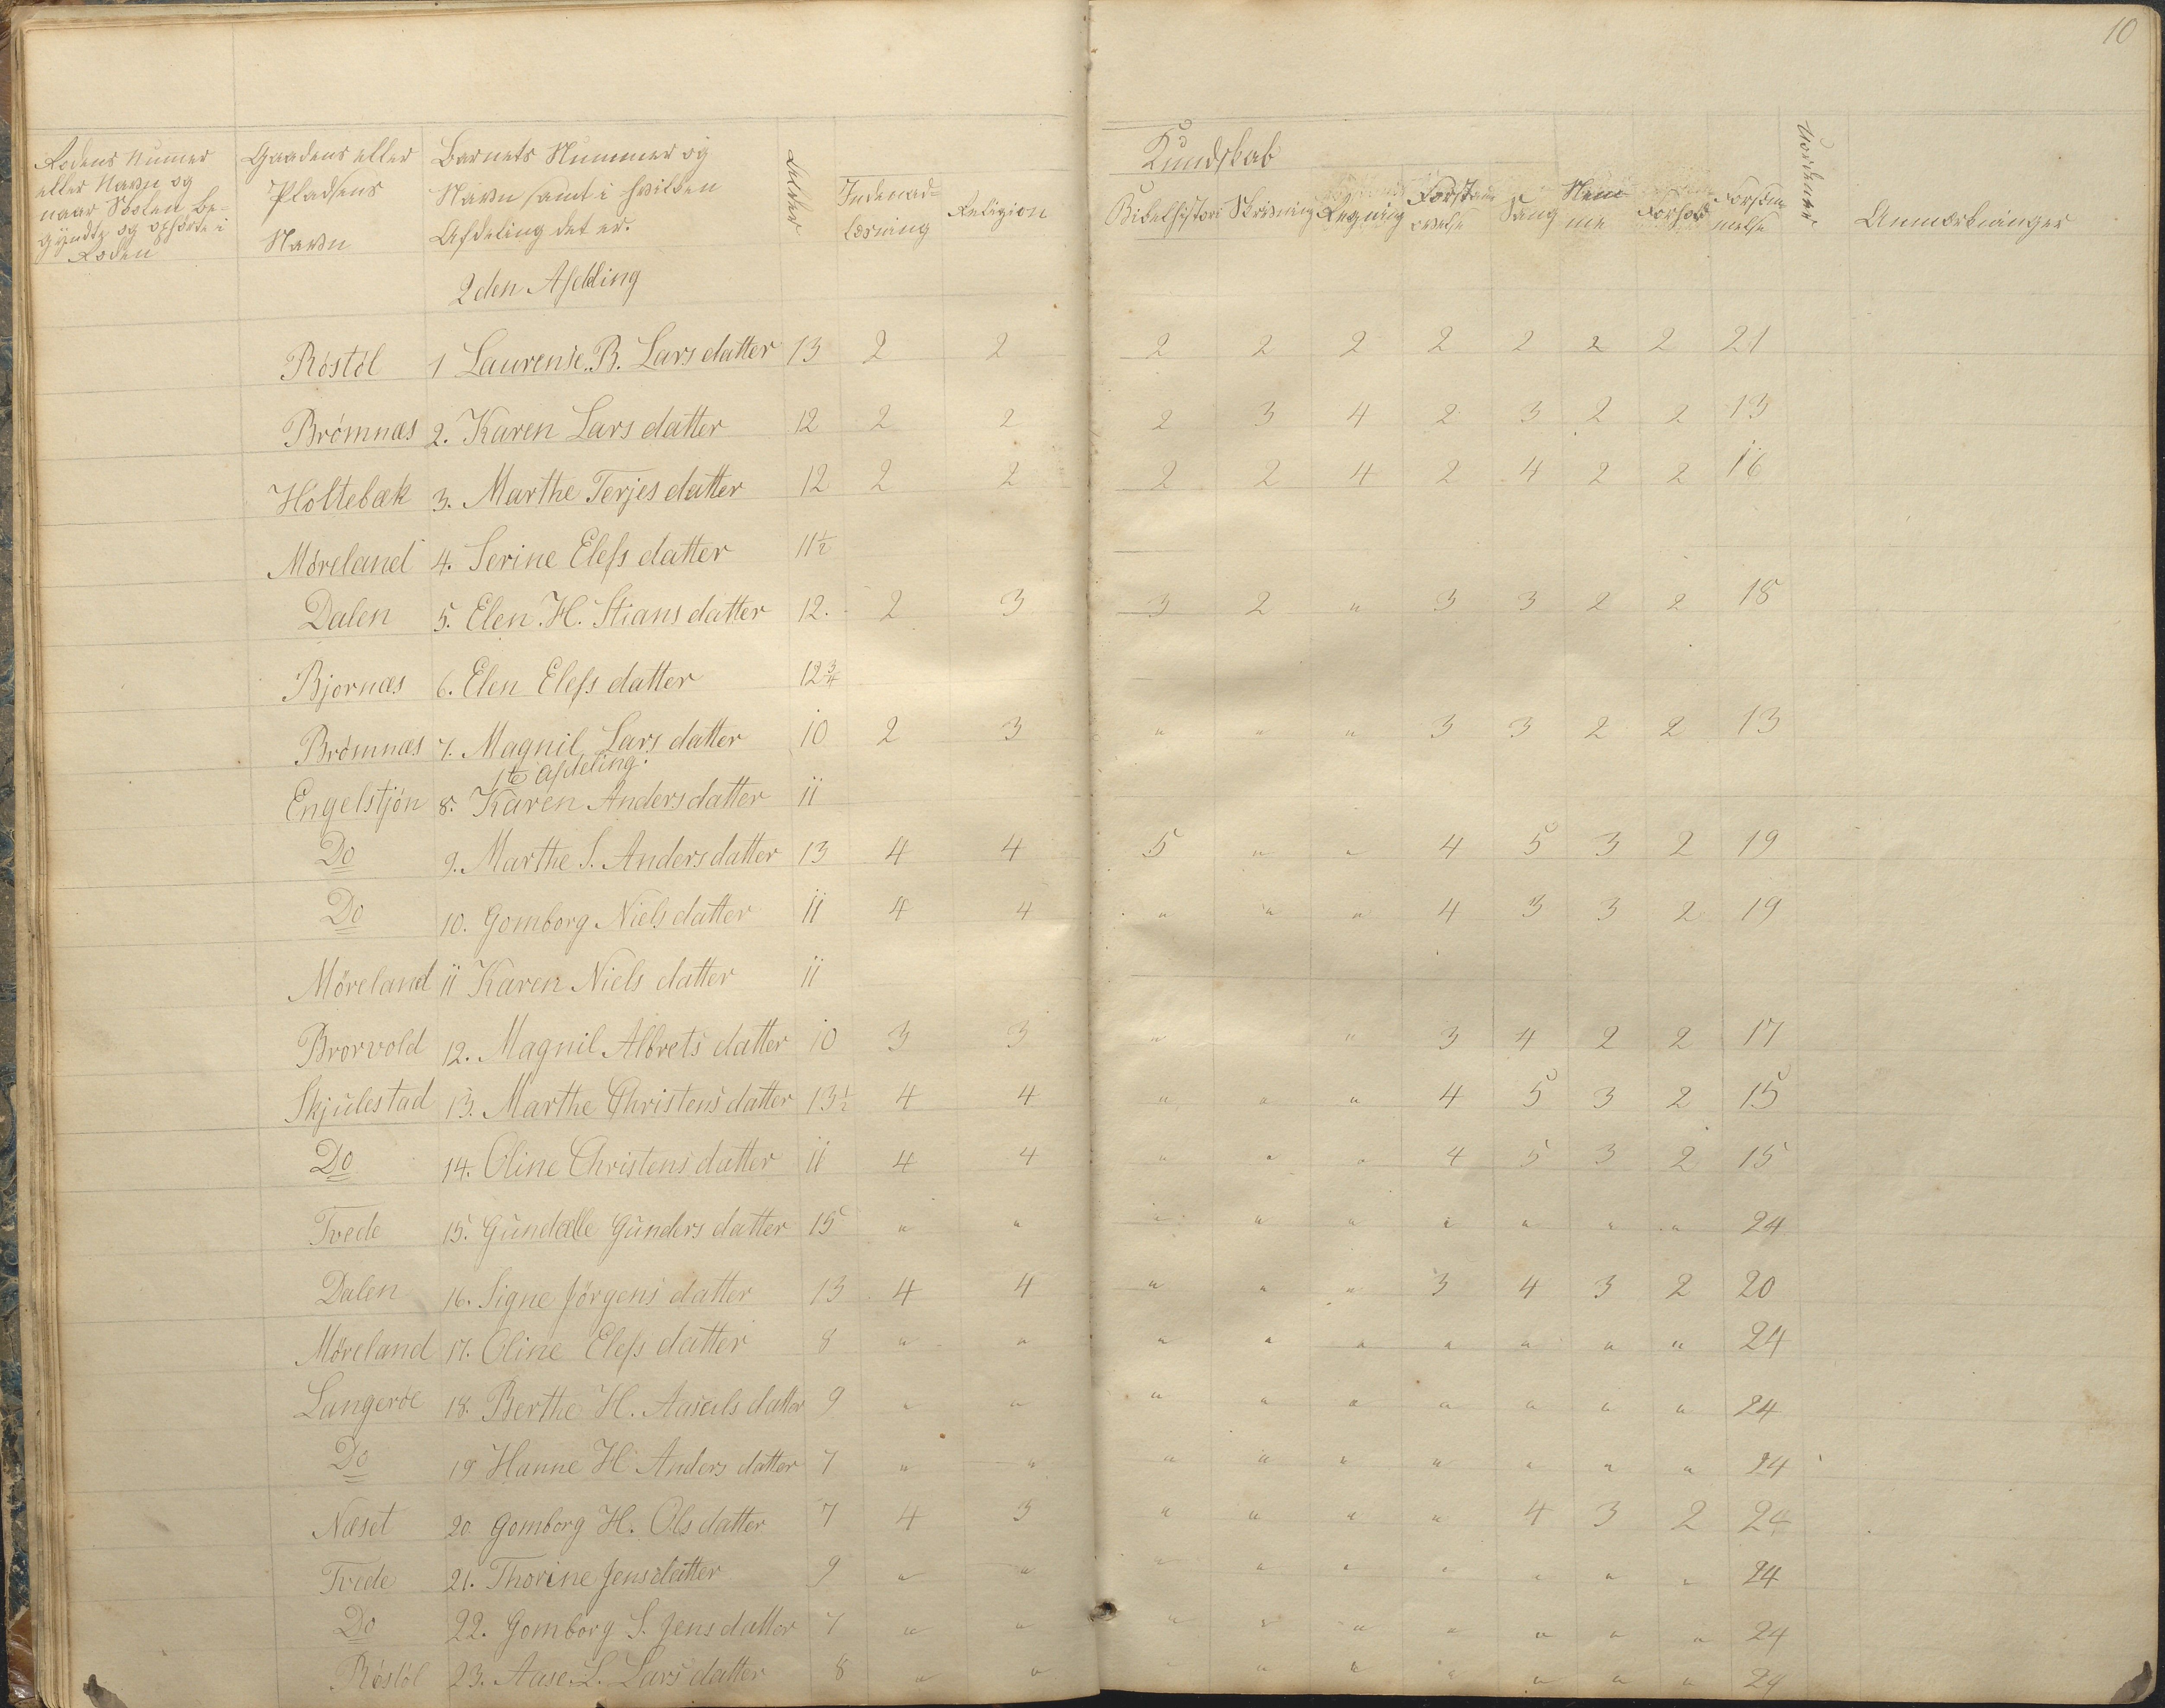 10
Rodens Numer eller Navn og naar Skolen be-gyndte og ophörte i Roden
Gaardens eller Pladsens Navn
Barnets Nummer og Navn samt i hvilken Afdeling det er.
Alder
Indenad-læsning
Religion
Kundskab
Bibelhistori
Skrivning
Regning
Forstands øvelse
Sang
Nem me
Forhold
Forsöm melse
Anmærkninger
2den Afdeling
Röstöl 1 Laurense. B. Lars datter 13 2 2 2 2 2 2 2 2 2 21
Brömnæs 2. Karen Lars datter 12 2 2 2 3 4 2 3 2 2 13
Holtebæk 3. Marthe Terjes datter 12 2 2 2 2 4 2 4 2 2 16
Möreland 4. Serine Elefs datter 11½
Dalen 5. Elen. H. Stians datter 12. 2 3 3 2 " 3 3 2 2 18
Bjornæs 6. Elen Elefs datter 12¾
Brömnæs 7. Magnil Lars datter 10 2 3 " " " 3 3 2 2 13
1te Afdeling.
Engelstjön 8. Karen Anders datter 11
Do 9. Marthe S. Anders datter 13 4 4 5 " " 4 5 3 2 19
Do 10. Gomborg Niels datter 11 4 4 " " " 4 3 3 2 19
Möreland 11 Karen Niels datter 11
Brorvold 12. Magnil Albrets datter 10 3 3 " " 3 4 2 2 17
Skjulestad 13. Marthe Christens datter 13½ 4 4 " " " 4 5 3 2 15
Do 14. Oline Christens datter 11 4 4 " " " 4 5 3 2 15
Tvede 15. Gundelle Gunders datter 15 " " " " " " " " " 24
Dalen 16. Signe Jörgens datter 13 4 4 " " " 3 4 3 2 20
Möreland 17. Oline Elefs datter 8 " " " " " " " " " 24
Langeröe 18. Berthe H. Aasuls datter 9 " " " " " " " " " 24
Do 19 Hanne H Anders datter 7 " " " " " " " " " 24
Næset 20 Gomborg H. Ols datter 7 4 3 " " " " 4 3 2 24
Tvede 21. Thorine Jens datter 9 " " " " " " " " " 24
Do 22. Gomborg S. Jens datter 7 " " " " " " " " " 24
Röstöl 23. Aase. L. Lars datter 8 " " " " " " " " " 24